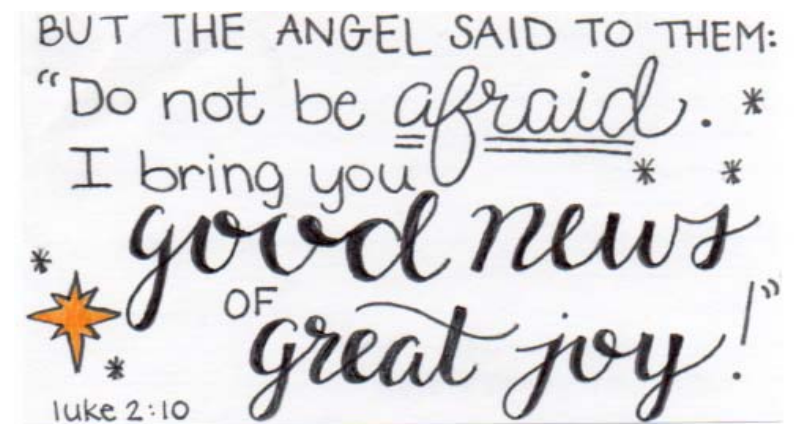 BUT THE ANGEL SAID TO THEM:
“Do not be afraid.
I bring you
good news
OF
great joy!”
luke 2:10